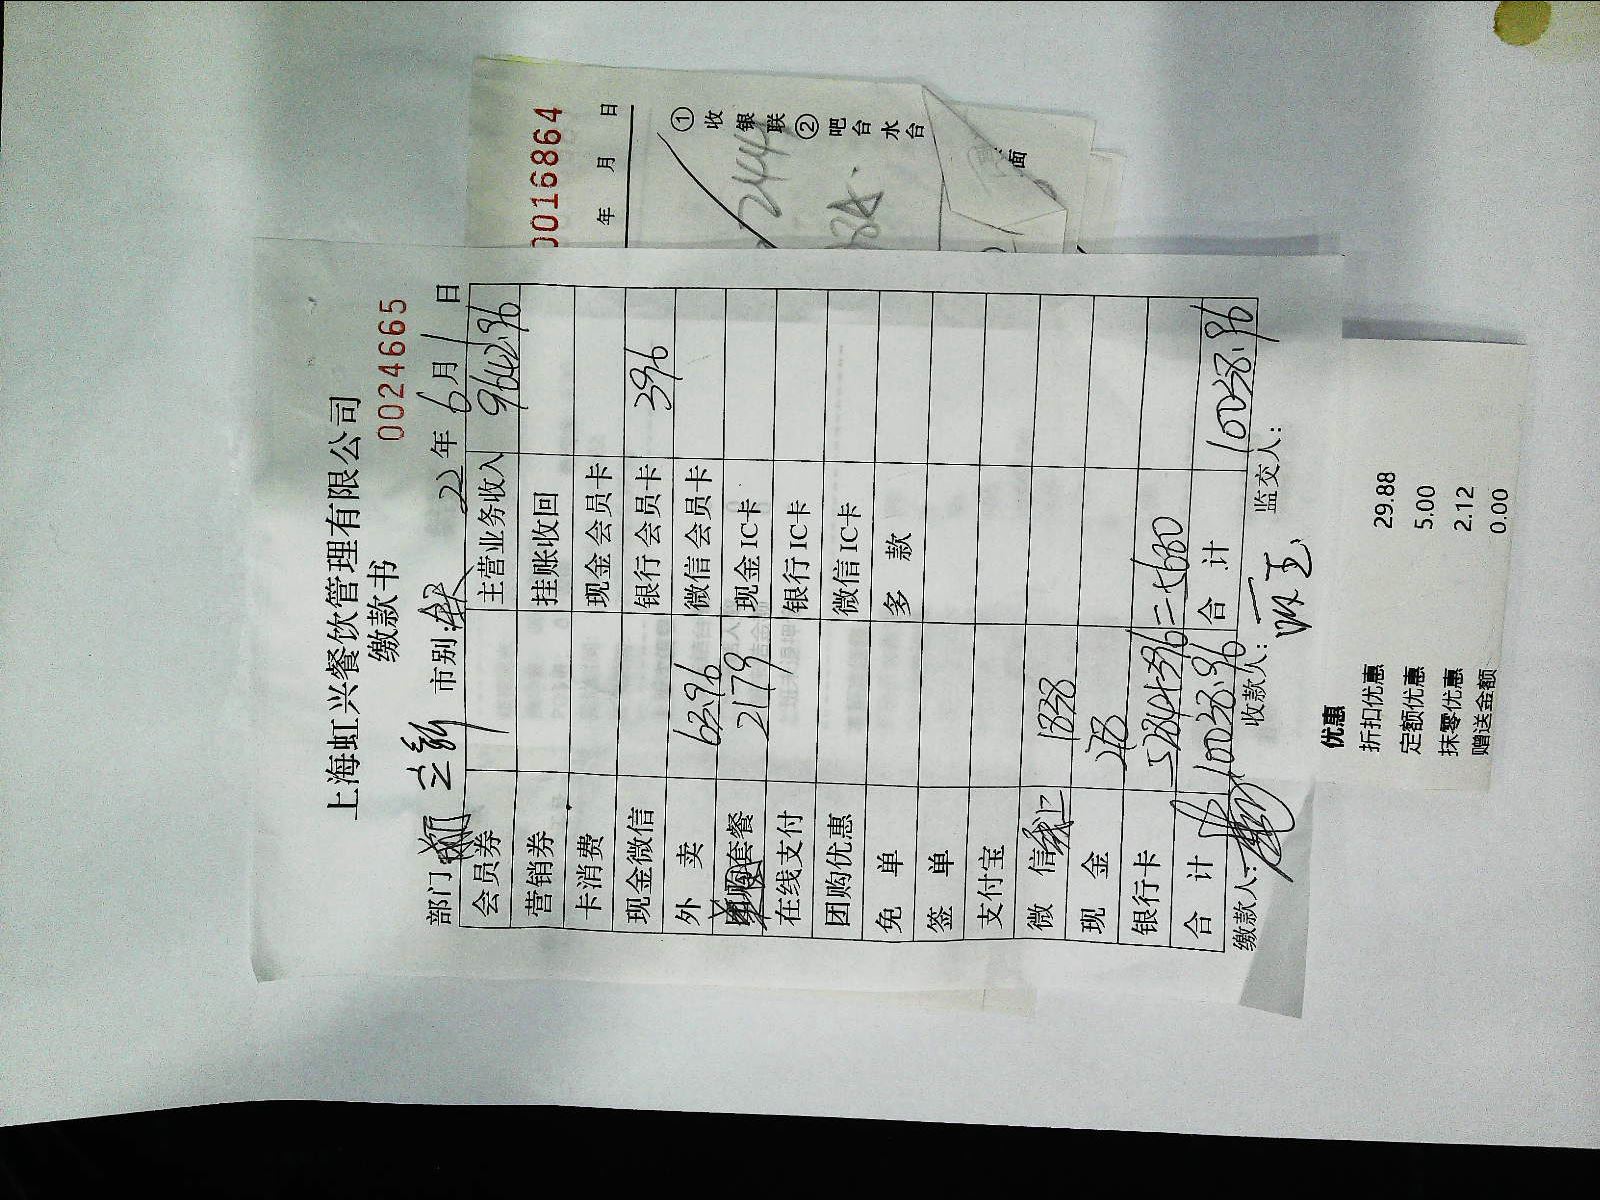 0016864
年 月 日
① 收银联 ② 吧台水台
2444
上海虹兴餐饮管理有限公司
缴款书
0024665
部门 市别: 22年6月1日
会员券 主营业务收入 9642.96
营销券 挂账收回
卡消费 现金会员卡
现金微信 银行会员卡 396
外卖 63.96 微信会员卡
套餐 2179 现金IC卡
在线支付 银行IC卡
团购优惠 微信IC卡
免单 多款
签单
支付宝
微信 1838
现金 278
银行卡 5284+396=5680
合计 10038.96 合计 10038.96
缴款人: 收款人: 监交人:
优惠
折扣优惠 29.88
定额优惠 5.00
抹零优惠 2.12
赠送金额 0.00